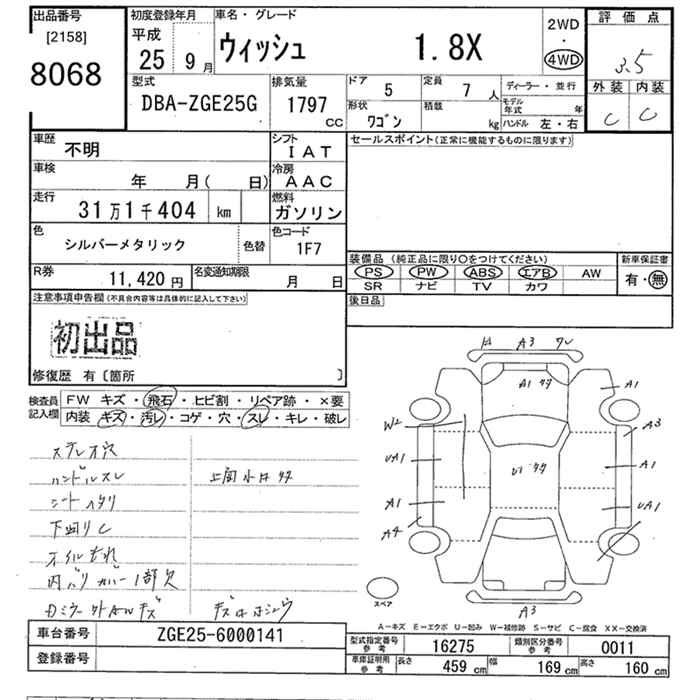 出品番号
[2158]
8068
初度登録年月
平成
25 9月
車名・グレード
ウィッシュ 1.8X
2WD
・
4WD
評価点
3.5
外装 内装
C C
型式
DBA-ZGE25G
排気量
1797 CC
ドア
5
定員
7 人
ディーラー・並行
形状
ワゴン
積載
kg
モデル年式 年
ハンドル 左・右
車歴
不明
シフト
IAT
車検
年 月( 日)
冷房
AAC
走行
31万1千404 km
燃料
ガソリン
色
シルバーメタリック
色替
色コード
1F7
R券
11,420 円
名変通知期限
月 日
セールスポイント(正常に機能するものに限ります)
装備品 (純正品に限り○をつけてください)
PS PW ABS エアB AW
SR ナビ TV カワ
新車保証書
有・無
後日品
注意事項申告欄(不具合内容等は具体的に記入して下さい)
初出品
修復歴 有〔箇所 〕
検査員記入欄
FW キズ・飛石・ヒビ割・リペア跡・×要
内装 キズ・汚レ・コゲ・穴・スレ・キレ・破レ
ステレオ穴
ハンドルスレ
シートヘタリ
下回りC
オイルもれ
内バリカバー1部欠
A3
A1
A1
A3
W2
UA1
A1
A1
UA1
A4
A3
スペア
A-キズ E-エクボ U-凹み W-補修跡 S-サビ C-腐食 XX-交換済
車台番号
ZGE25-6000141
登録番号
型式指定番号参考
16275
類別区分番号参考
0011
車庫証明用参考
長さ 459 cm
幅 169 cm
高さ 160 cm